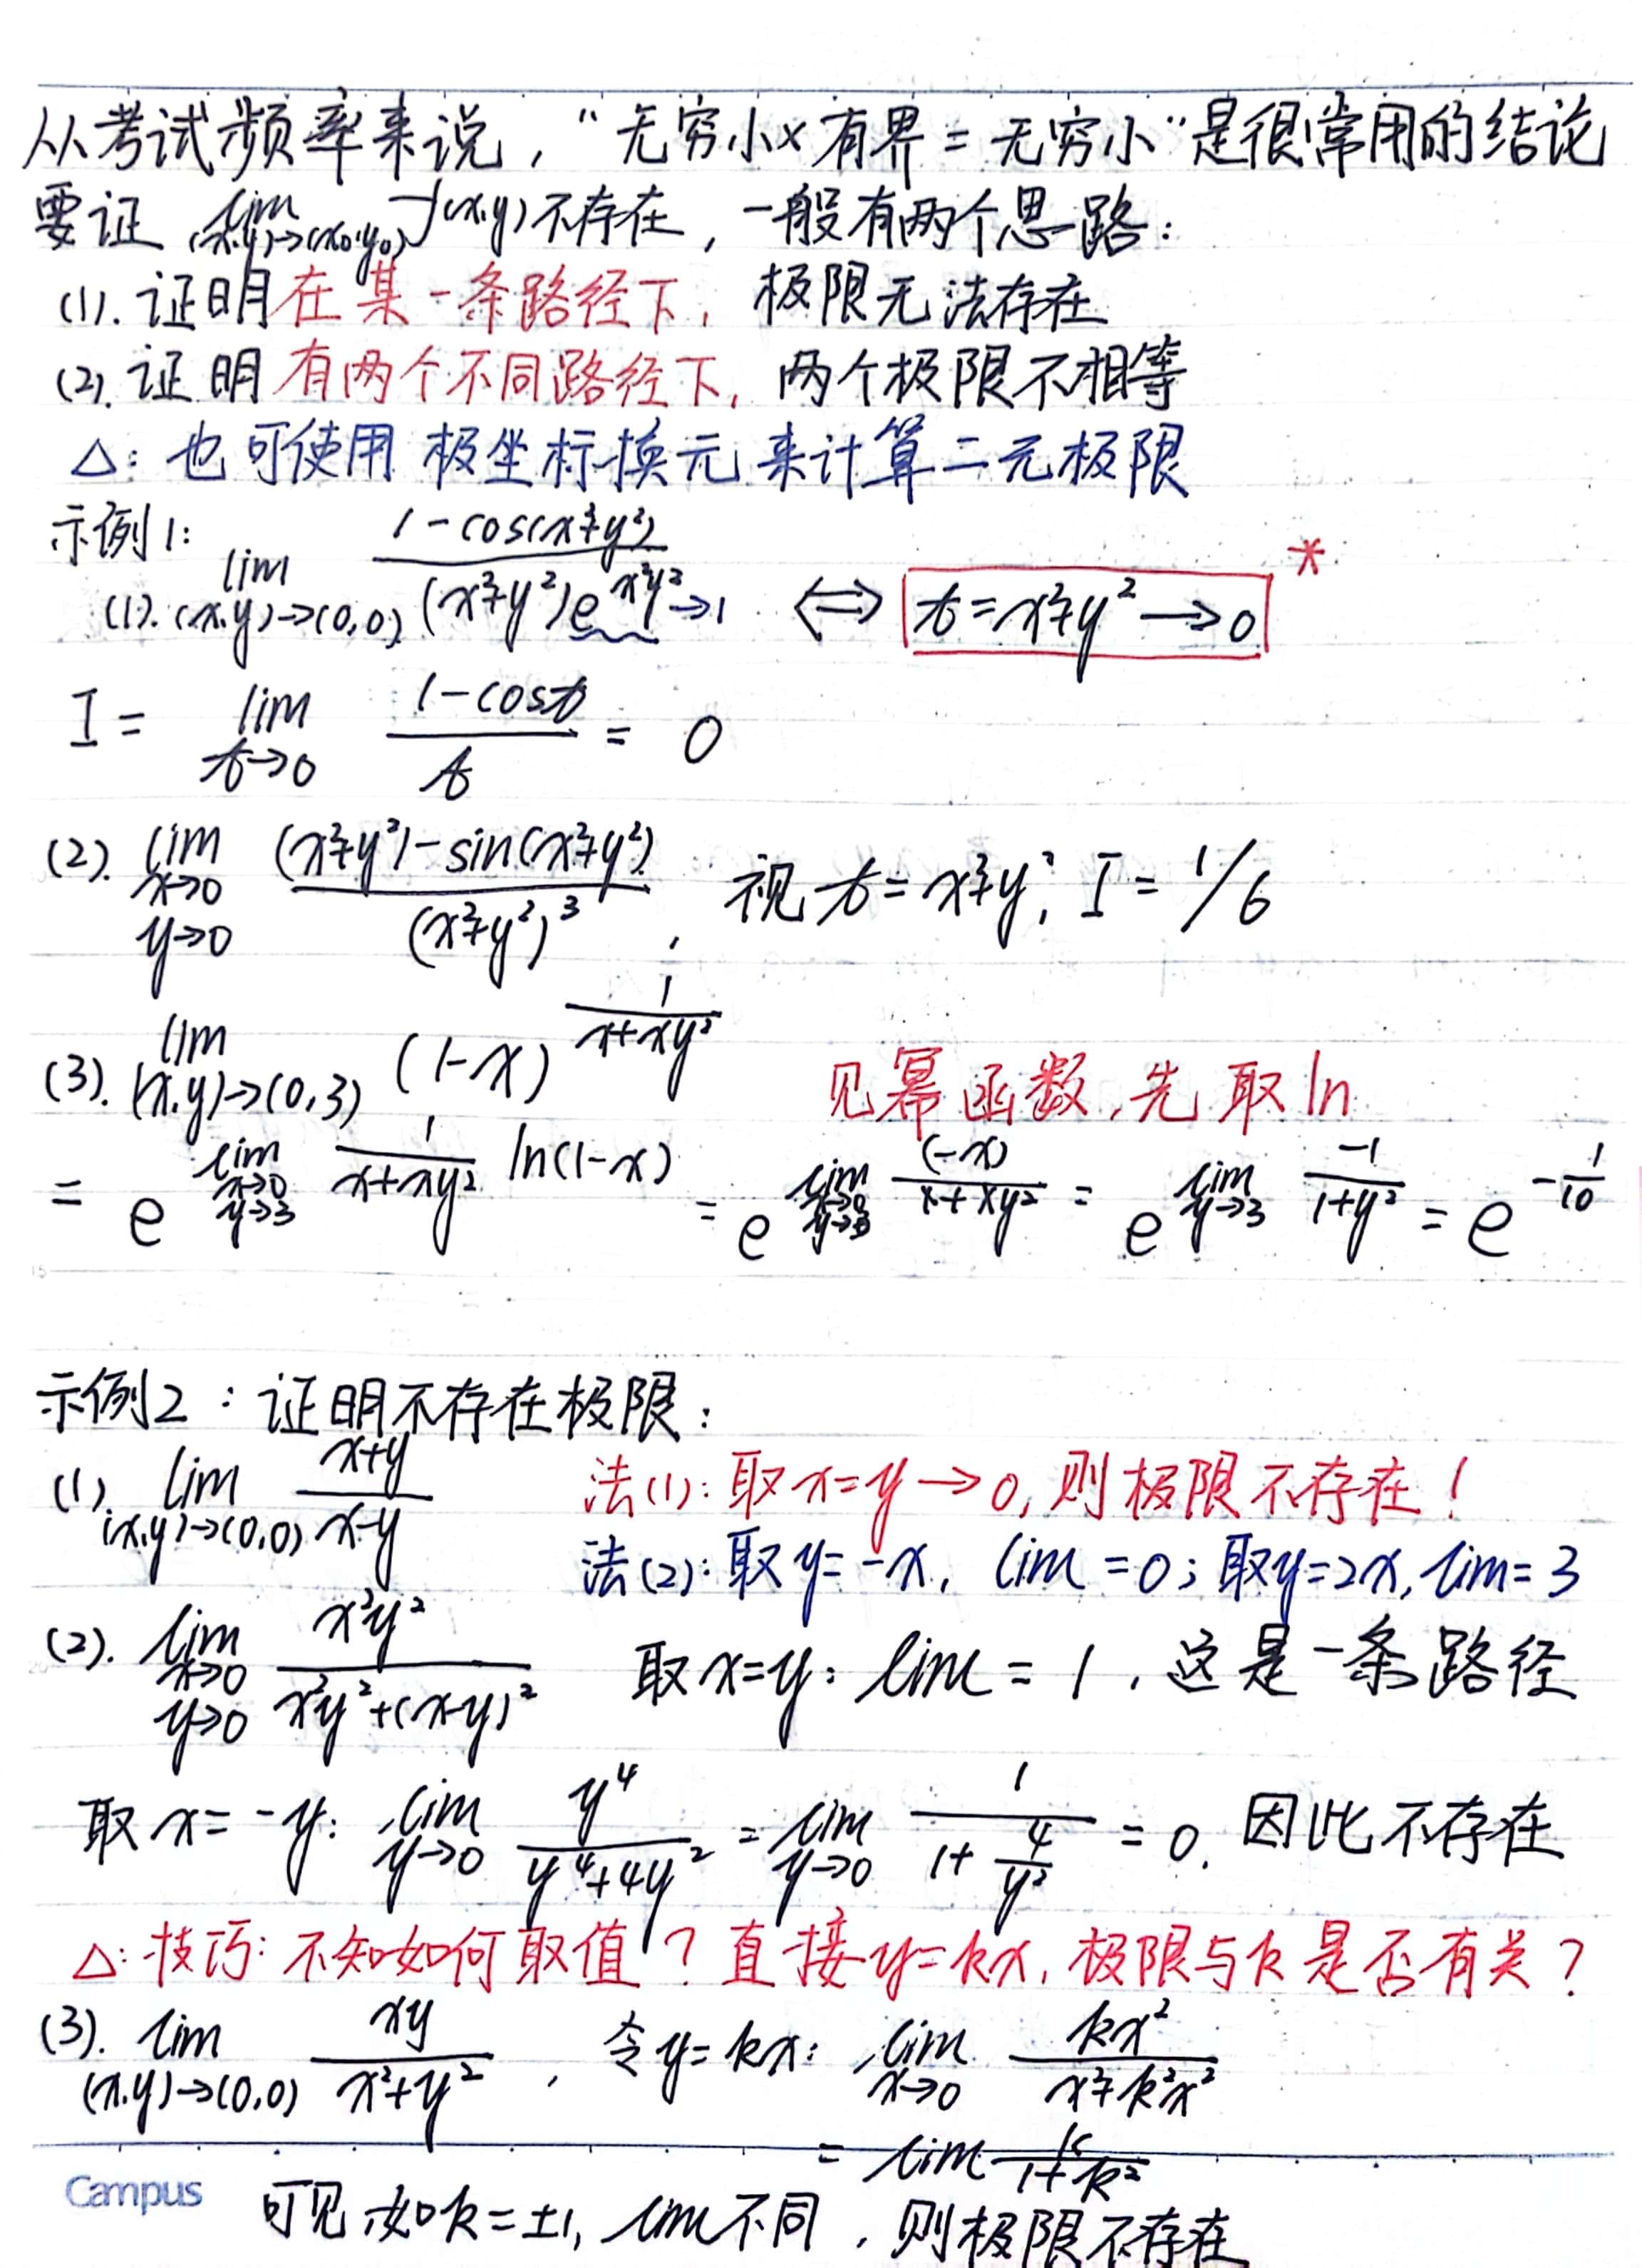 从考试频率来说，“无穷小×有界=无穷小”是很常用的结论
要证 lim (x,y)→(x₀,y₀) f(x,y) 不存在，一般有两个思路：
(1). 证明在某一条路径下，极限无法存在
(2). 证明有两个不同路径下，两个极限不相等
△：也可使用极坐标换元来计算二元极限
示例1：
(1). lim (x,y)→(0,0) (1-cos(x²+y²))/((x²+y²)e^(x²y²)) →1 ⟺ t=x²+y²→0 *
I = lim t→0 (1-cost)/t = 0
(2). lim x→0 y→0 ((x²+y²)-sin(x²+y²))/(x²+y²)³，视t=x²+y²，I=1/6
(3). lim (x,y)→(0,3) (1-x)^(1/(x+xy²)) 见幂函数，先取ln
= e^(lim x→0 y→3 1/(x+xy²) ln(1-x)) = e^(lim x→0 y→3 (-x)/(x+xy²)) = e^(lim y→3 -1/(1+y²)) = e^(-1/10)
示例2：证明不存在极限：
(1). lim (x,y)→(0,0) (x+y)/(x-y) 法(1)：取x=y→0，则极限不存在！
法(2)：取y=-x，lim=0；取y=2x，lim=3
(2). lim x→0 y→0 x²y²/(x²y²+(x-y)²) 取x=y：lim=1，这是一条路径
取x=-y：lim y→0 y⁴/(y⁴+4y²) = lim y→0 1/(1+4/y²) = 0. 因此不存在
△：技巧：不知如何取值？直接y=kx，极限与k是否有关？
(3). lim (x,y)→(0,0) xy/(x²+y²)，令y=kx：lim x→0 kx²/(x²+k²x²)
= lim k/(1+k²)
Campus
可见如k=±1，lim不同，则极限不存在